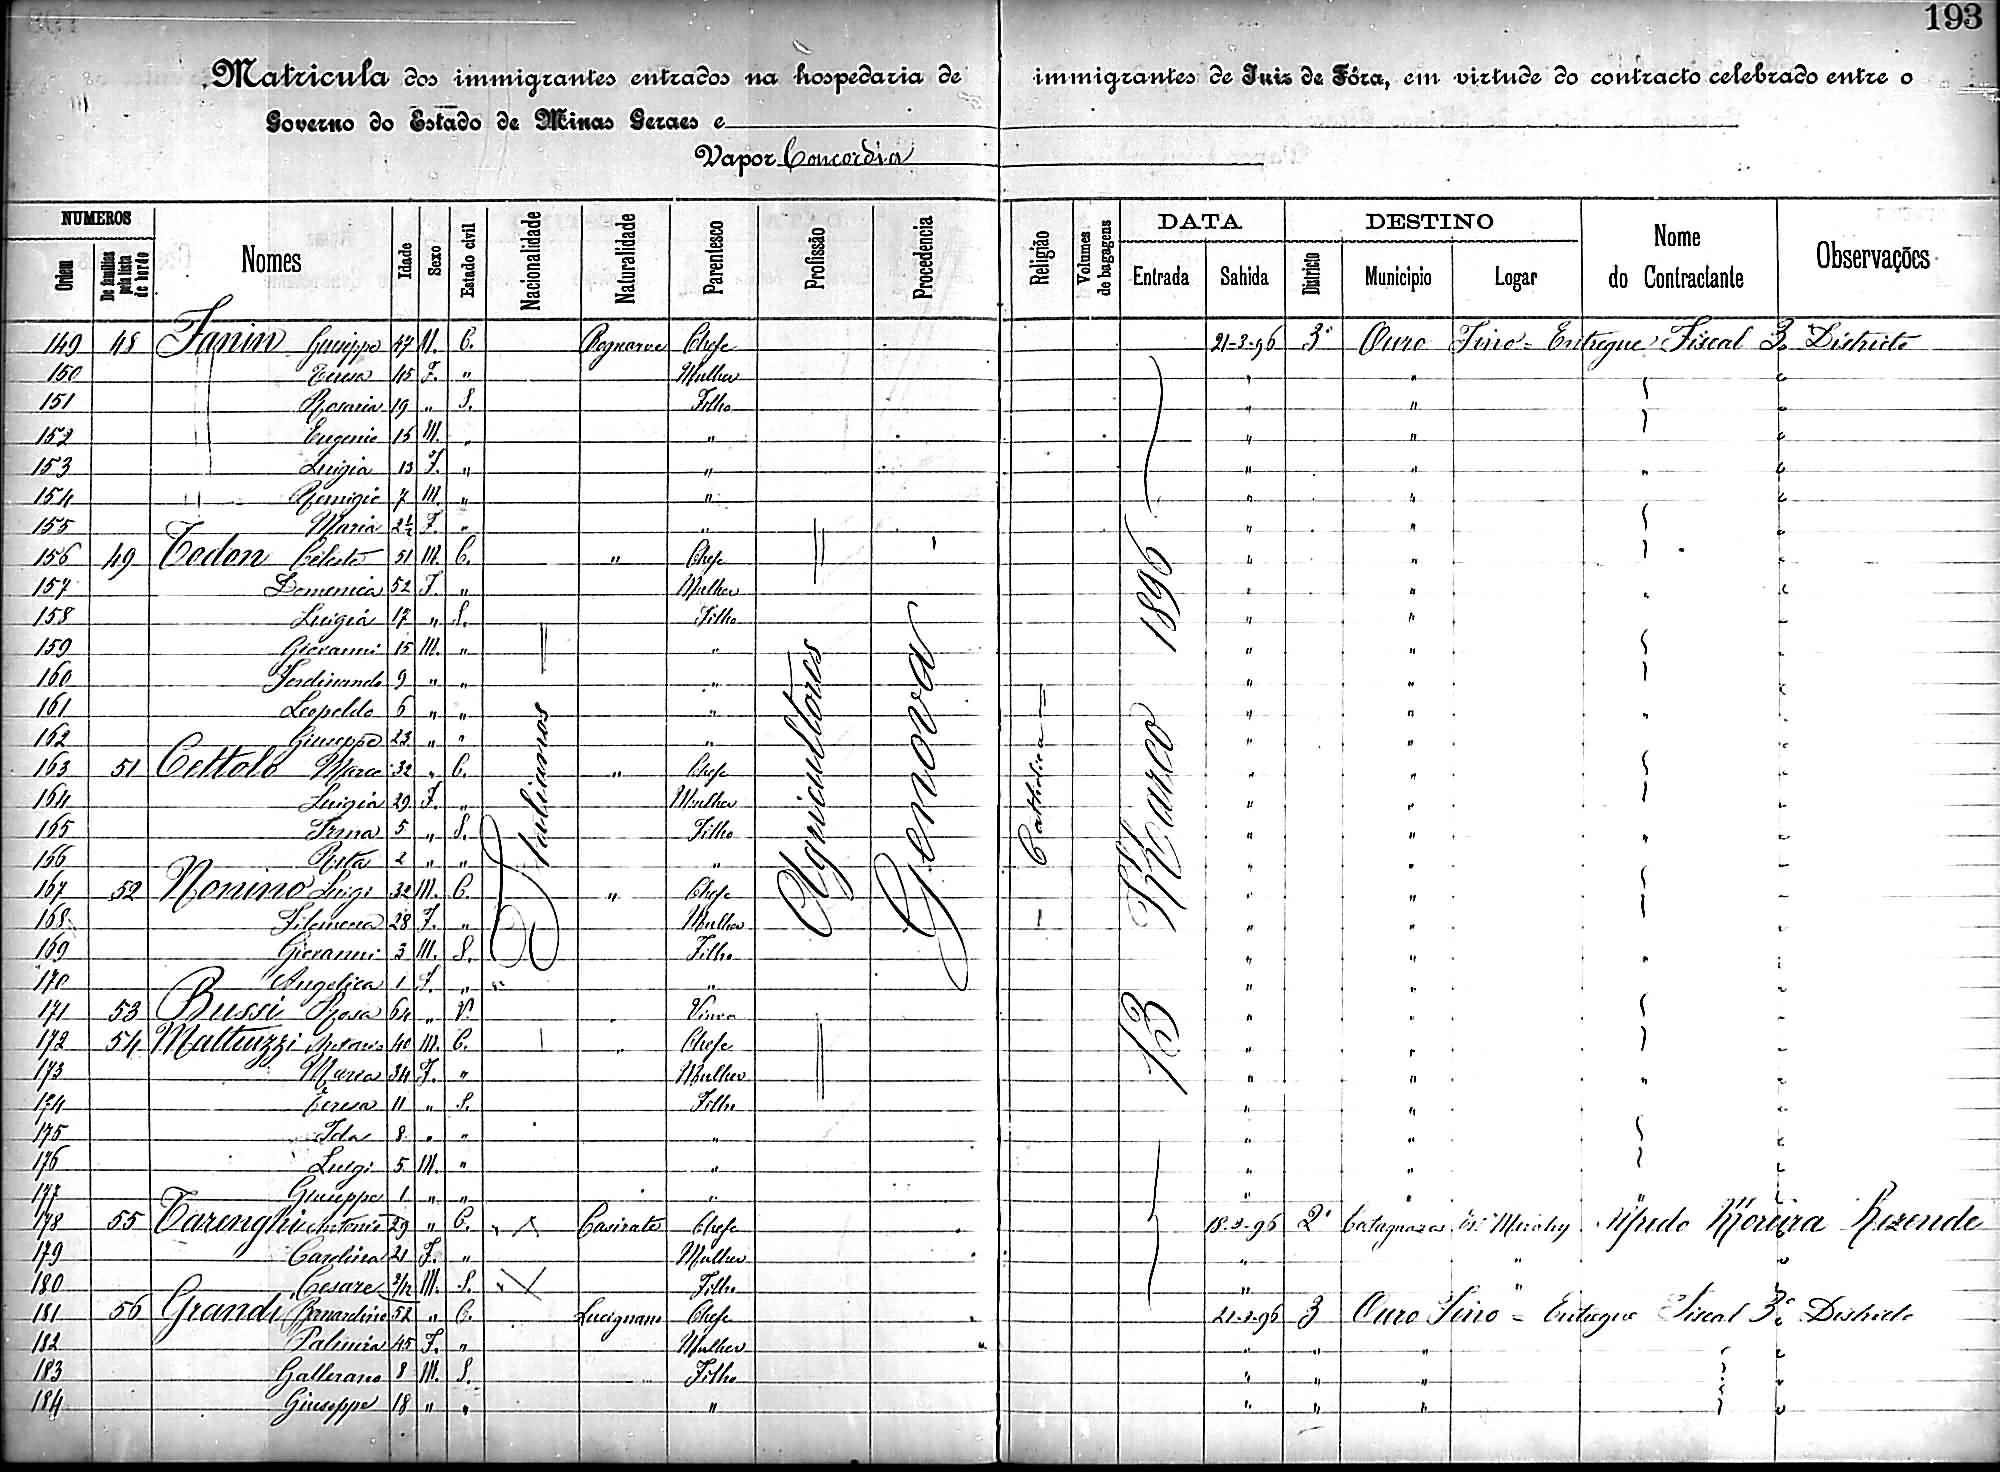 193
Matricula dos immigrantes entrados na hospedaria de immigrantes de Juiz de Fóra, em virtude do contracto celebrado entre o
Governo do Estado de Minas Geraes e
Vapor Concordia
NUMEROS DATA DESTINO
Ordem De familias pela lista de bordo Nomes Idade Sexo Estado civil Nacionalidade Naturalidade Parentesco Profissão Procedencia Religião Volumes de bagagens Entrada Sahida Districto Municipio Logar Nome do Contractante Observações
Italianos
Agricultores
Genova
Catholica
13 Março 1896
149 48 Fanin Giuseppe 47 M. C. Chefe 21-3-96 3º Ouro Fino - Entregue Fiscal 3º Districto
150 Teresa 45 F. " Mulher " "
151 Rosaria 19 " S. Filho " "
152 Eugenio 15 M. " " " "
153 Luigia 13 F. " " " "
154 Remigio 7 M. " " " "
155 Maria 2½ F. " " " "
156 49 Todon Celeste 51 M. C. " Chefe " "
157 Domenica 52 F. " Mulher " "
158 Luigia 17 " S. Filho " "
159 Giovanni 15 M. " " " "
160 Ferdinando 9 " " " " "
161 Leopoldo 6 " " " " "
162 Giuseppe 23 " " " " "
163 51 Cettolo Marco 32 " C. " Chefe " "
164 Luigia 29 F. " Mulher " "
165 Irma 5 " S. Filho " "
166 Rita 2 " " " " "
167 52 Nonino Luigi 32 M. C. " Chefe " "
168 Filomena 28 F. " Mulher " "
169 Giovanni 3 M. S. Filho " "
170 Angelica 1 F. " " " "
171 53 Bussi Rosa 64 " V. " Viuva " "
172 54 Matteuzzi Antonio 40 M. C. " Chefe " "
173 Maria 34 F. " Mulher " "
174 Teresa 11 " S. Filho " "
175 Ida 8 " " " " "
176 Luigi 5 M. " " " "
177 Giuseppe 1 " " " " "
178 55 Tarenghi Antonio 29 " C. Casirate Chefe 18-3-96 2º Cataguazes Mirahy Alfredo Moreira Rezende
179 Carolina 21 F. " Mulher " "
180 Cesare 2/12 M. S. Filho " "
181 56 Grandi Bernardino 52 " C. Lucignano Chefe 21-3-96 3 Ouro Fino - Entregue Fiscal 3º Districto
182 Palmira 45 F. " Mulher " " "
183 Gallerano 8 M. S. Filho " " "
184 Giuseppe 18 " " " " " "